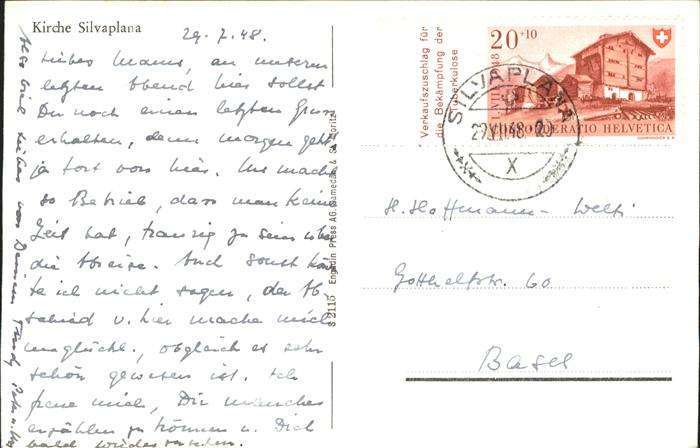 Kirche Silvaplana
29.7.48.
Liebes Mams, an unserem
letzten Abend hier sollst
Du noch einen letzten Gruss
erhalten, denn morgen geht's
ja fort von hier. Uns macht
so Betrieb, dass man keine
Zeit hat, traurig zu sein über
die Abreise. Auch sonst könn-
te ich nicht sagen, der Ab-
schied v. hier mache mich
unglücklich, obgleich es sehr
schön gewesen ist. Ich
freue mich, Dir manches
erzählen zu können u. Dich
bald wieder zu sehen.
Alles viel Liebes von Deinem
S 2115 Engadin Press AG. Samedan & St. Moritz
Verkaufszuschlag für
die Bekämpfung der
Tuberkulose
20+10
1948
PRO
CONFOEDERATIO HELVETICA
SILVAPLANA
29.VII.48
X
H. Hoffmann-Welti
Gotthelfstr. 60
Basel